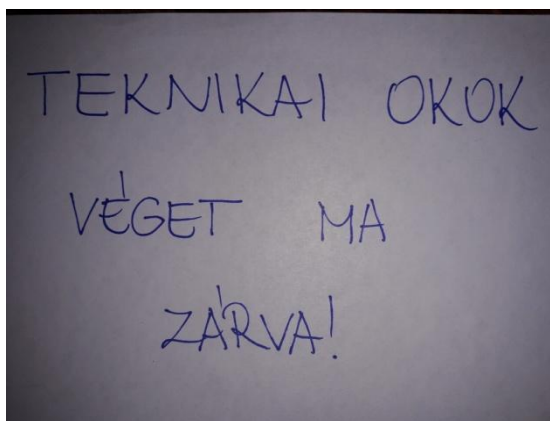 TEKNIKAI OKOK
VÉGET MA
ZÁRVA!